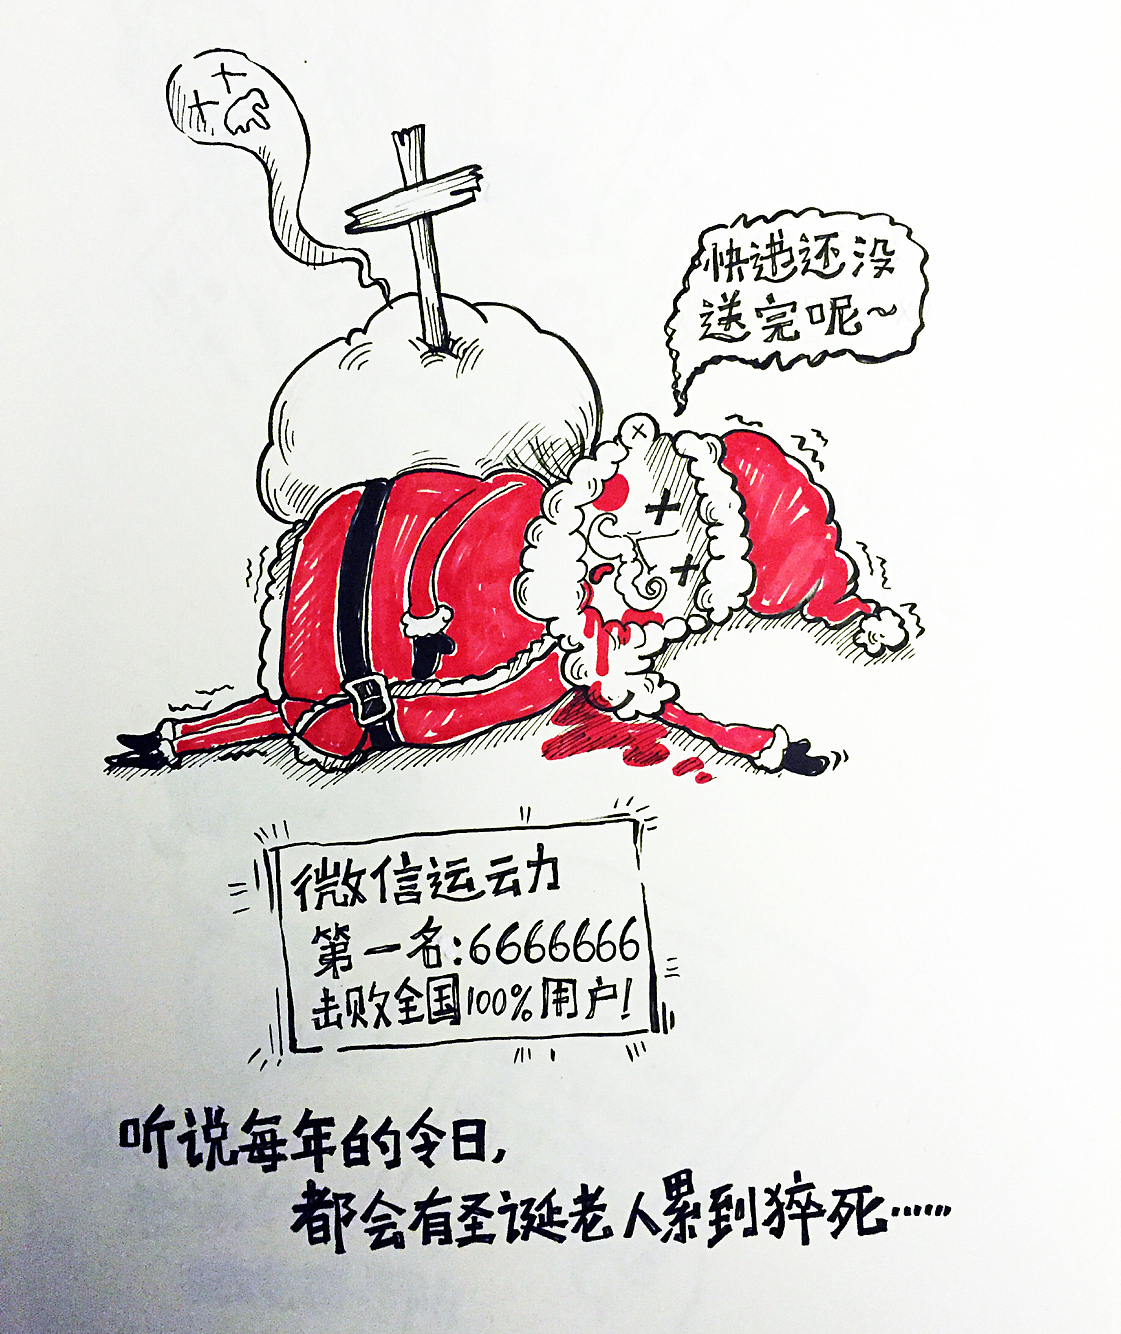 快递还没
送完呢~
微信运动
第一名:6666666
击败全国100%用户!
听说每年的今日,
都会有圣诞老人累到猝死……